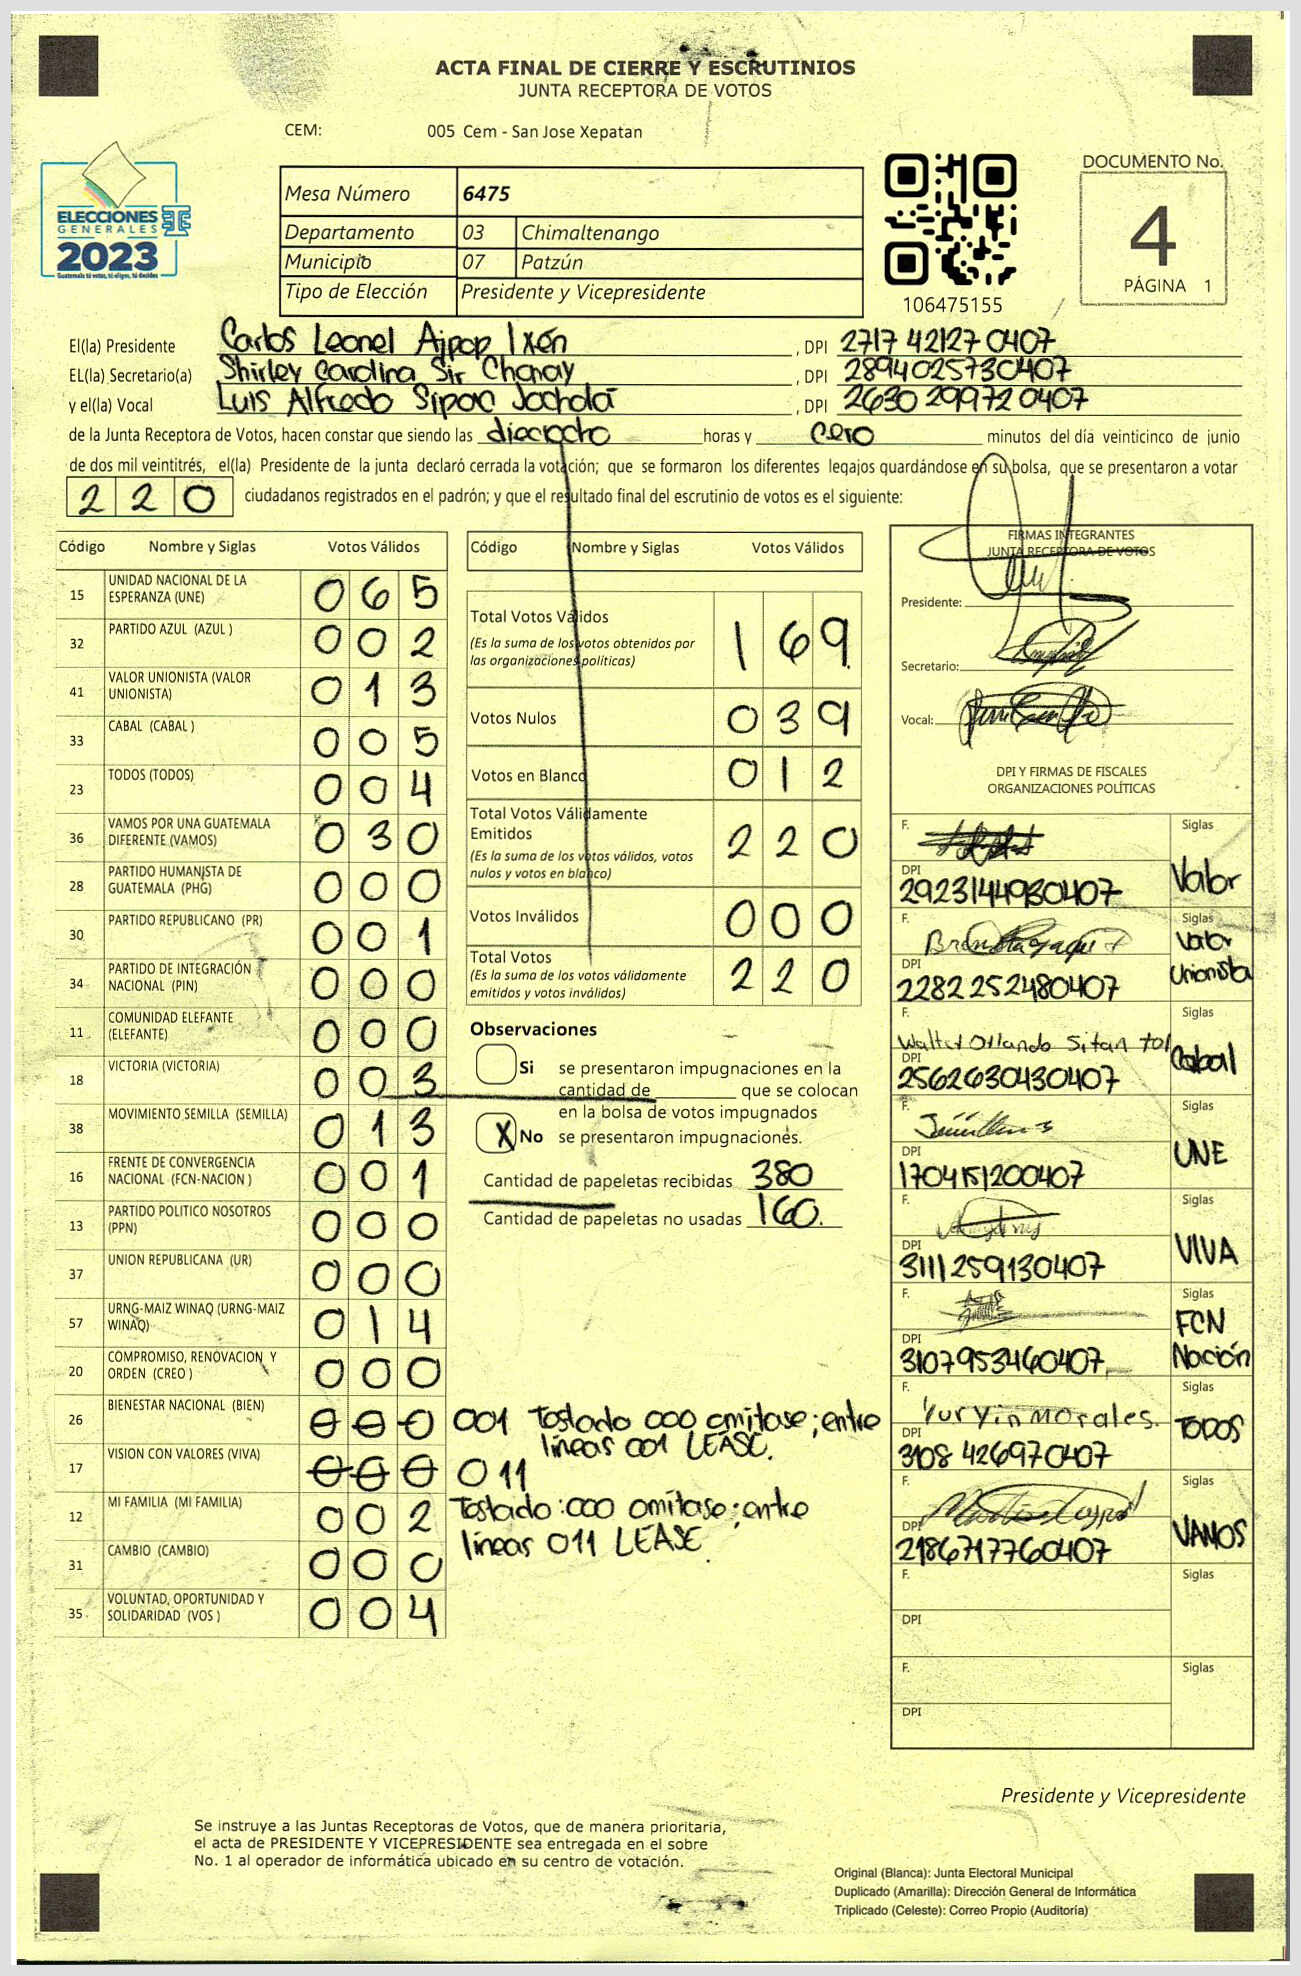 ACTA FINAL DE CIERRE Y ESCRUTINIOS
JUNTA RECEPTORA DE VOTOS
CEM: 005 Cem - San Jose Xepatan
ELECCIONES
GENERALES
2023
Guatemala: tú votas, tú eliges, tú decides
Mesa Número 6475
Departamento 03 Chimaltenango
Municipio 07 Patzún
Tipo de Elección Presidente y Vicepresidente
106475155
DOCUMENTO No.
4
PÁGINA 1
El(la) Presidente Carlos Leonel Ajpop Ixén , DPI 2717 42127 0407
EL(la) Secretario(a) Shirley Carolina Sir Chonay , DPI 2894025730407
y el(la) Vocal Luis Alfredo Sipac Jocholá , DPI 2630 29972 0407
de la Junta Receptora de Votos, hacen constar que siendo las dieciocho horas y cero minutos del día veinticinco de junio
de dos mil veintitrés, el(la) Presidente de la junta declaró cerrada la votación; que se formaron los diferentes legajos guardándose en su bolsa, que se presentaron a votar
220 ciudadanos registrados en el padrón; y que el resultado final del escrutinio de votos es el siguiente:
Código Nombre y Siglas Votos Válidos
15 UNIDAD NACIONAL DE LA ESPERANZA (UNE) 065
32 PARTIDO AZUL (AZUL ) 002
41 VALOR UNIONISTA (VALOR UNIONISTA) 013
33 CABAL (CABAL ) 005
23 TODOS (TODOS) 004
36 VAMOS POR UNA GUATEMALA DIFERENTE (VAMOS) 030
28 PARTIDO HUMANISTA DE GUATEMALA (PHG) 000
30 PARTIDO REPUBLICANO (PR) 001
34 PARTIDO DE INTEGRACIÓN NACIONAL (PIN) 000
11 COMUNIDAD ELEFANTE (ELEFANTE) 000
18 VICTORIA (VICTORIA) 003
38 MOVIMIENTO SEMILLA (SEMILLA) 013
16 FRENTE DE CONVERGENCIA NACIONAL (FCN-NACION ) 001
13 PARTIDO POLITICO NOSOTROS (PPN) 000
37 UNION REPUBLICANA (UR) 000
57 URNG-MAIZ WINAQ (URNG-MAIZ WINAQ) 014
20 COMPROMISO, RENOVACION Y ORDEN (CREO ) 000
26 BIENESTAR NACIONAL (BIEN) 000 001 Testado 000 omitase; entre
líneas 001 LEASE.
17 VISION CON VALORES (VIVA) 000 011
12 MI FAMILIA (MI FAMILIA) 002 Testado: 000 omitase; entre
líneas 011 LEASE.
31 CAMBIO (CAMBIO) 000
35 VOLUNTAD, OPORTUNIDAD Y SOLIDARIDAD (VOS ) 004
Código Nombre y Siglas Votos Válidos
Total Votos Válidos 169
(Es la suma de los votos obtenidos por
las organizaciones políticas)
Votos Nulos 039
Votos en Blanco 012
Total Votos Válidamente
Emitidos 220
(Es la suma de los votos válidos, votos
nulos y votos en blanco)
Votos Inválidos 000
Total Votos 220
(Es la suma de los votos válidamente
emitidos y votos inválidos)
Observaciones
Si se presentaron impugnaciones en la
cantidad de que se colocan
en la bolsa de votos impugnados
X No se presentaron impugnaciones.
Cantidad de papeletas recibidas 380
Cantidad de papeletas no usadas 160.
FIRMAS INTEGRANTES
JUNTA RECEPTORA DE VOTOS
Presidente:
Secretario:
Vocal:
DPI Y FIRMAS DE FISCALES
ORGANIZACIONES POLÍTICAS
F. Siglas
DPI 2923144930407 Valor
F. Siglas
DPI 2282252480407 Valor Unionista
F. Walter Orlando Sitan tol Siglas
DPI 2562630430407 Cabal
F. Siglas
DPI 1704151200407 UNE
F. Siglas
DPI 3111259130407 VIVA
F. Siglas
DPI 3107953460407 FCN Nación
F. Yuryin Morales. Siglas
DPI 3108 426970407 TODOS
F. Siglas
DPI 2186717760407 VAMOS
F. Siglas
DPI
F. Siglas
DPI
Presidente y Vicepresidente
Se instruye a las Juntas Receptoras de Votos, que de manera prioritaria,
el acta de PRESIDENTE Y VICEPRESIDENTE sea entregada en el sobre
No. 1 al operador de informática ubicado en su centro de votación.
Original (Blanca): Junta Electoral Municipal
Duplicado (Amarilla): Dirección General de Informática
Triplicado (Celeste): Correo Propio (Auditoría)